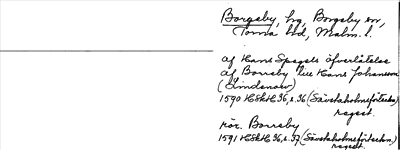 Borgeby, hg, Borgeby sn,
Torna hd, Malm. l.
af Hans Spegels öfverlåtelse
af Borreby till Hans Johansson
(Lindenow)
1590 HSKH 36, s. 36 (Säfstaholmsförteckn.)
regest.
rör. Borreby
1591 HSKH 36, s. 37 (Säfstaholmsförteckn.)
regest.